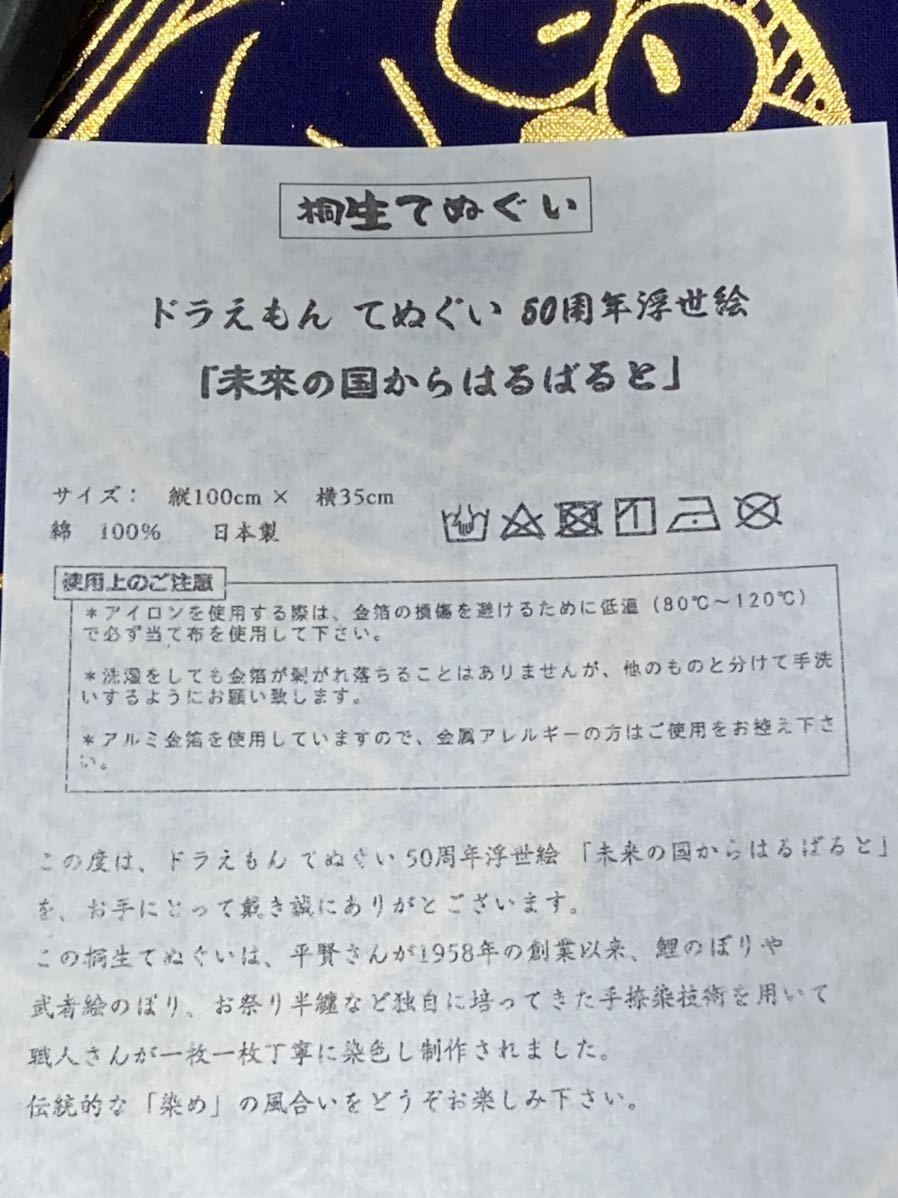 桐生てぬぐい
ドラえもん てぬぐい 50周年浮世絵
「未来の国からはるばると」
サイズ： 縦100cm × 横35cm
綿 100% 日本製
使用上のご注意
＊アイロンを使用する際は、金箔の損傷を避けるために低温（80℃～120℃）
で必ず当て布を使用して下さい。
＊洗濯をしても金箔が剝がれ落ちることはありませんが、他のものと分けて手洗
いするようにお願い致します。
＊アルミ金箔を使用していますので、金属アレルギーの方はご使用をお控え下さ
い。
この度は、ドラえもん てぬぐい 50周年浮世絵 「未来の国からはるばると」
を、お手にとって戴き誠にありがとございます。
この桐生てぬぐいは、平賢さんが1958年の創業以来、鯉のぼりや
武者絵のぼり、お祭り半纏など独自に培ってきた手捺染技術を用いて
職人さんが一枚一枚丁寧に染色し制作されました。
伝統的な「染め」の風合いをどうぞお楽しみ下さい。